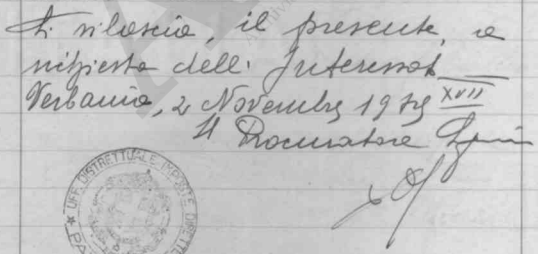 Si rilascia, il presente, a
richiesta dell'Interessat
Verbania, 2 Novembre 1939 XVII
Il Procuratore
UFF. DISTRETTUALE IMPOSTE DIRETTE